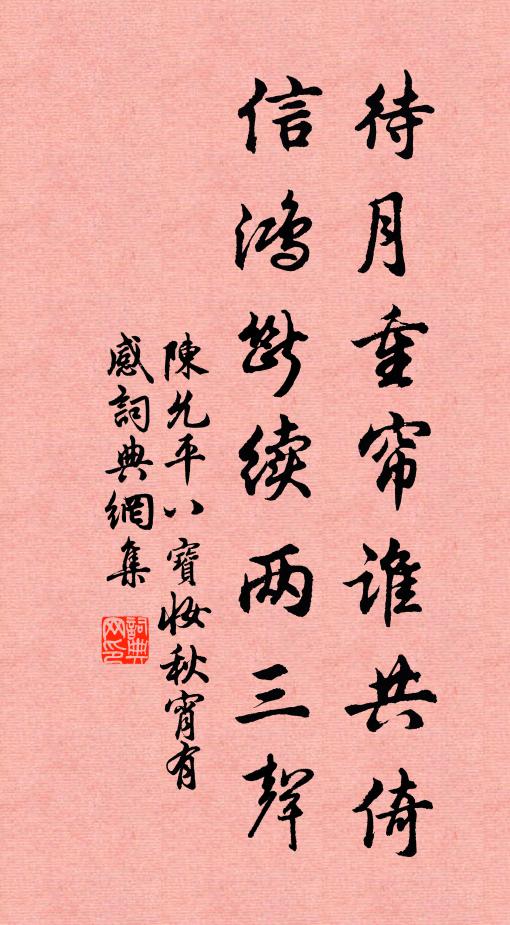 待月重帘谁共倚
信鸿断续两三聲
陳允平八寶妝秋宵有
感詞典網集
詞典网印